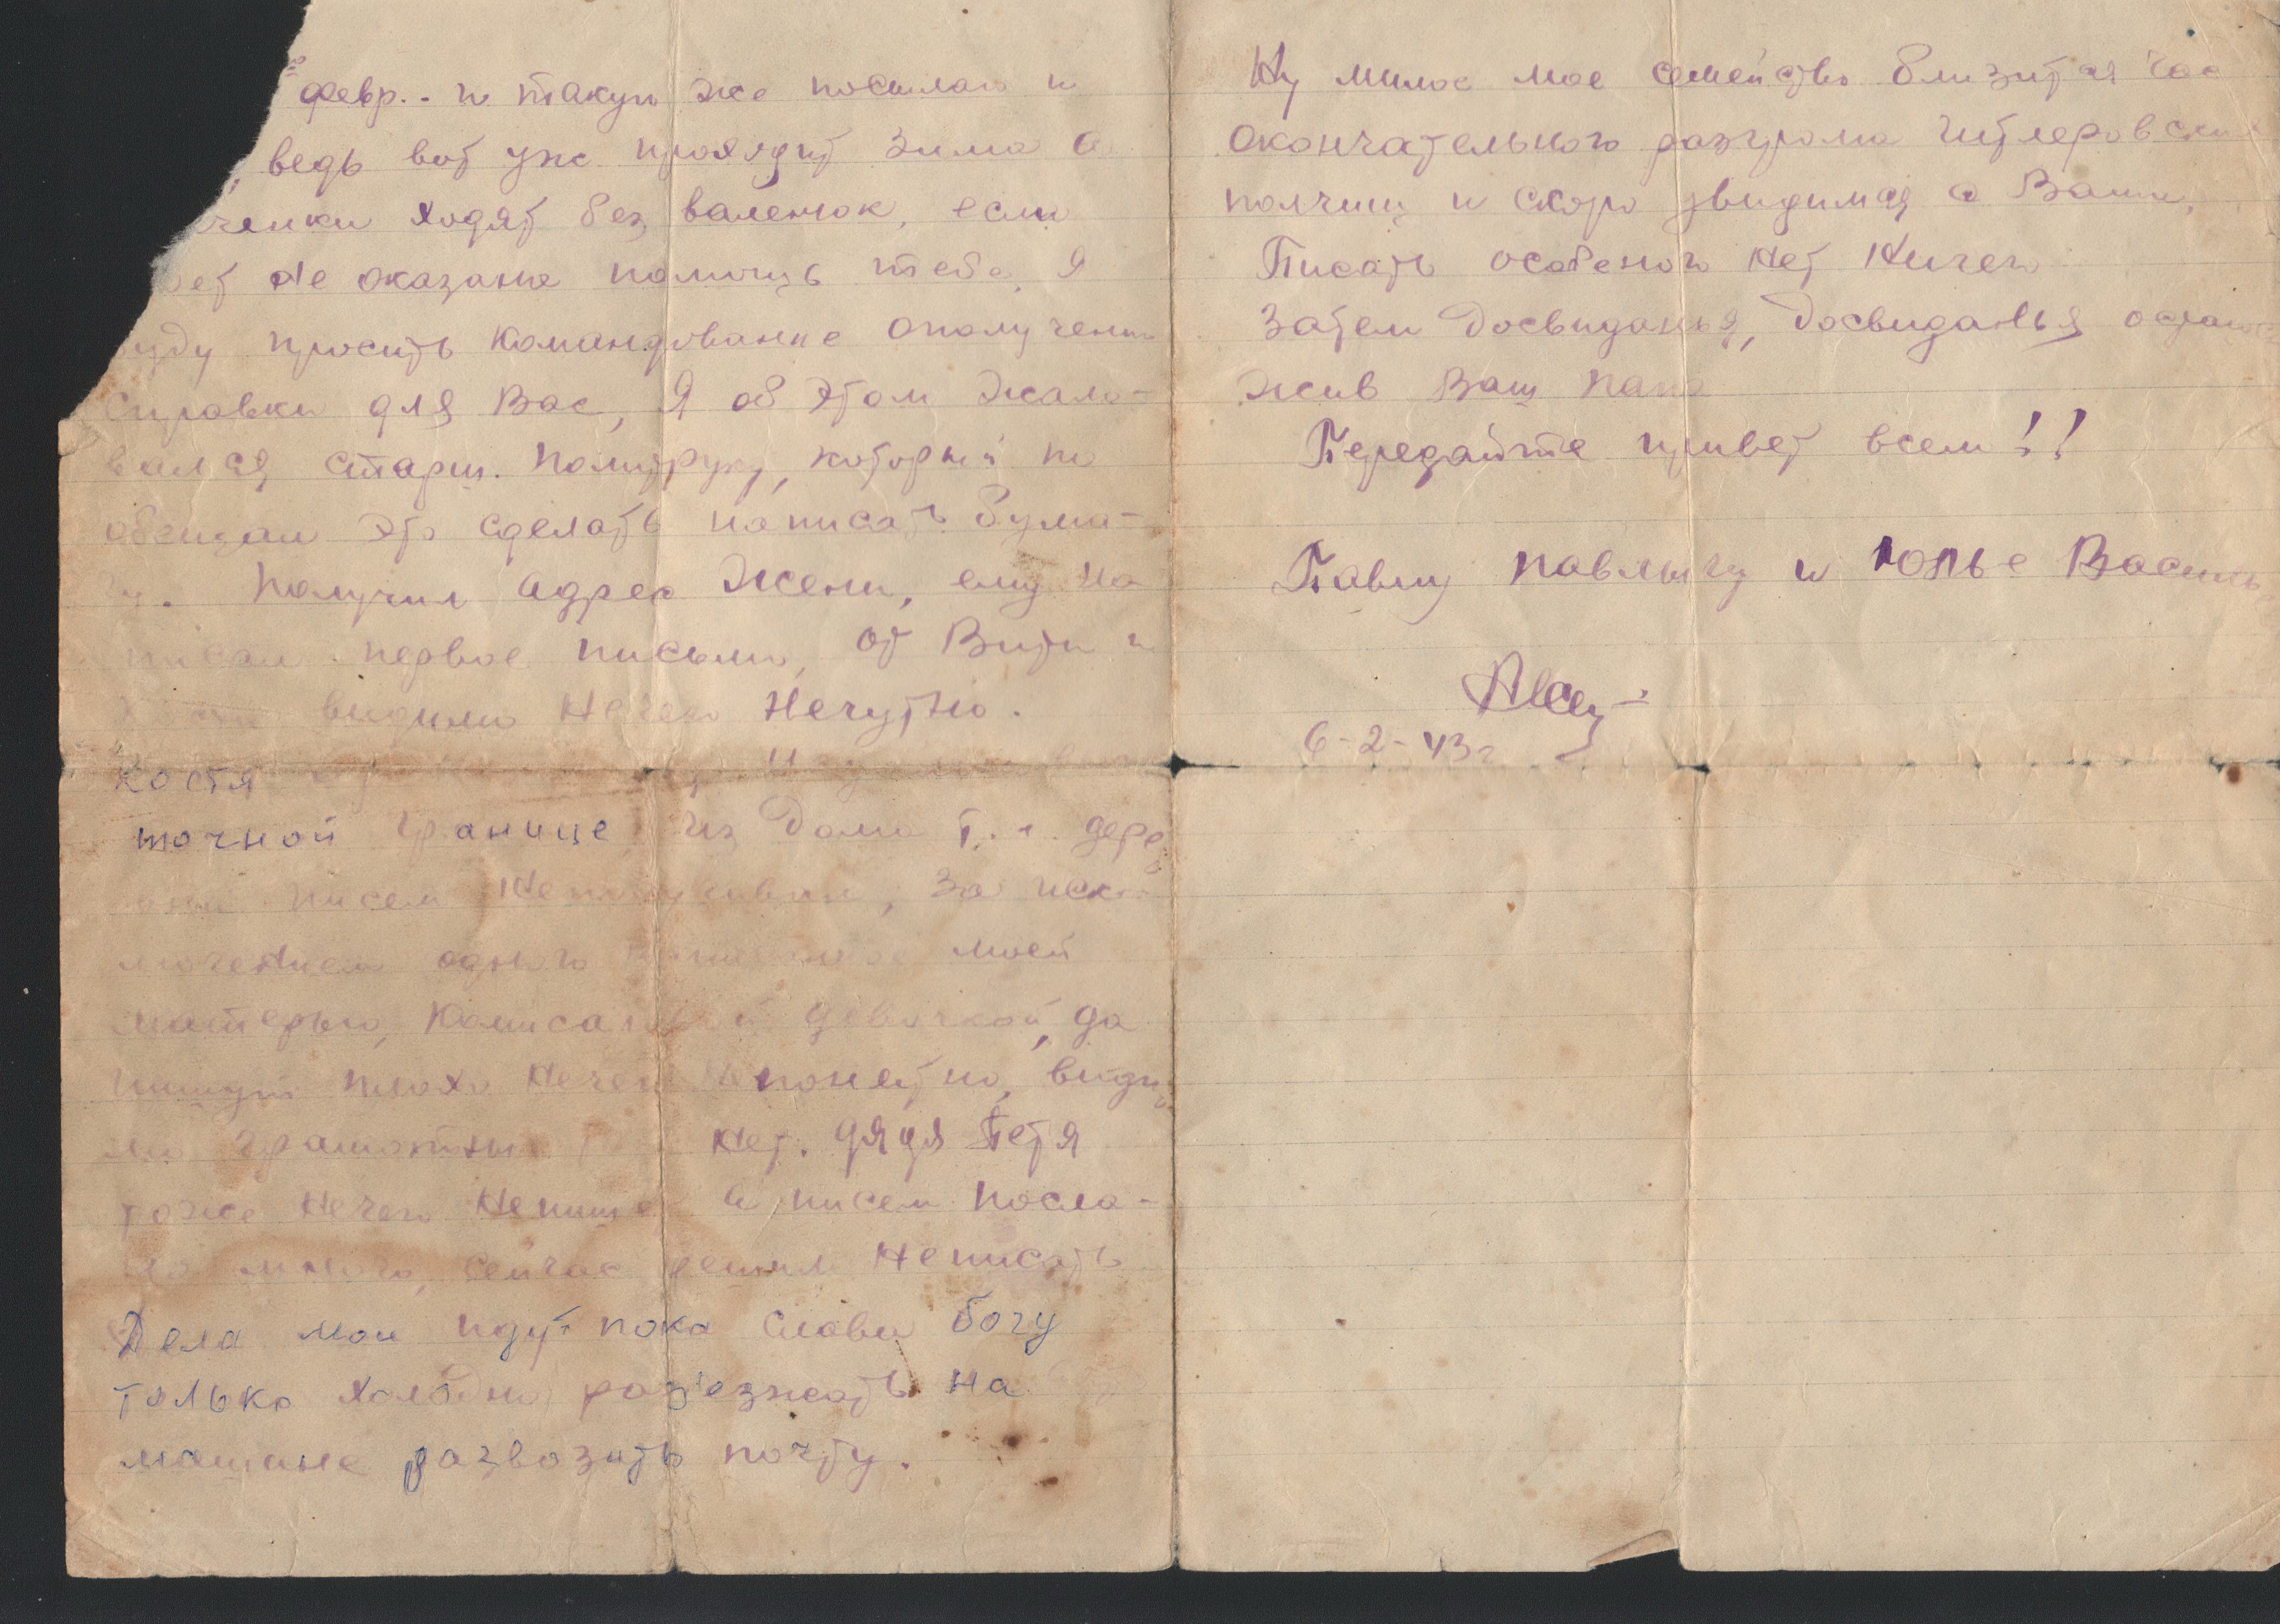 февр. - и такую же посылаю и
ведь вот уже проходит зима а
ченки ходят без валенок, если
ет не оказана помощь тебе, я
уду просить командование о получении
справки для Вас, Я об этом жало-
вался старш. политруку, который по
обещал это сделать написать бума-
гу. Получил адрес Жени, ему на
писал первое письмо, от Вити и
видимо нечего нечутно.
Костя
точной границе из дома т. е. дере
писем неполучивал, за иск
лючением одного моей
матерью, девочкой, да
пишут плохо нечего непонетно, види
мо грамотных нет. Дядя Петя
тоже нечего непише а писем посла-
но много, сейчас решил неписать
Дела мои идут пока слава богу
только холодно раз'езжать на
машине развозить почту.
Ну милое мое семейство близится час
окончательного разгрома гитлеровских
полчищ и скоро увидимся с Вами,
Писать особеного нет ничего
Затем досвиданья, досвиданья остаюсь
жив Ваш папа
Передайте привет всем!!
Павлу Павлычу и Юлье Василь
6-2-43г